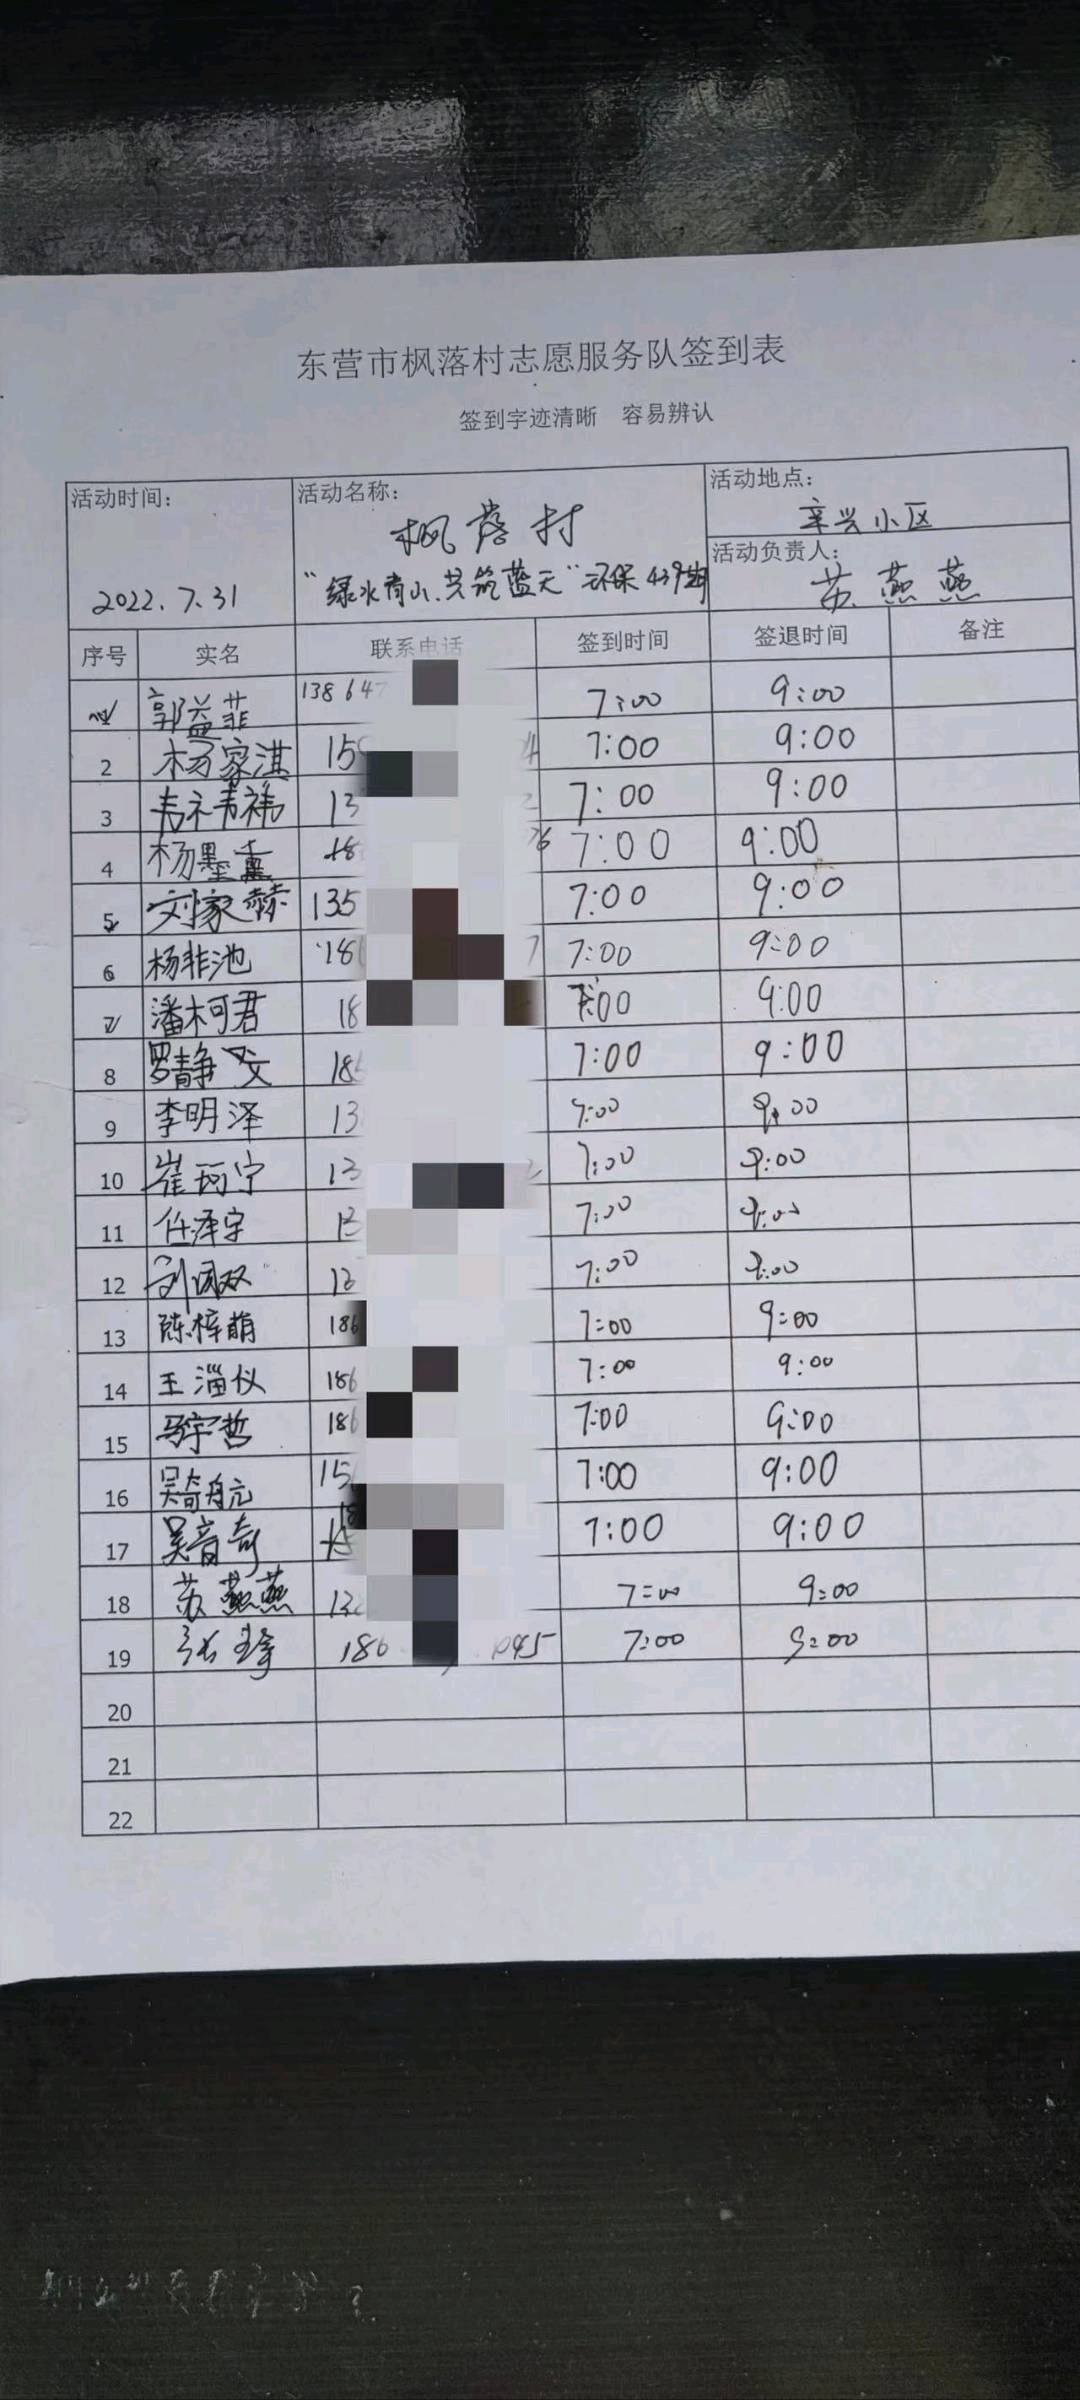 东营市枫落村志愿服务队签到表
签到字迹清晰 容易辨认
活动时间:
2022.7.31
活动名称:
枫落村
"绿水青山.共筑蓝天"环保439期
活动地点:
辛兴小区
活动负责人:
苏燕燕
序号 实名 联系电话 签到时间 签退时间 备注
郭益菲 138647 7:00 9:00
2 杨家淇 15 7:00 9:00
3 13 7:00 9:00
4 杨墨熏 18 76 7:00 9:00
5 刘家赫 135 7:00 9:00
6 杨非池 18 7 7:00 9:00
7 潘柯君 18 7:00 9:00
8 罗静文 18 7:00 9:00
9 李明泽 13 7:00 9:00
10 崔珂宁 13 7:00 9:00
11 任泽宇 13 7:00 9:00
12 刘国双 7:00 9:00
13 陈梓萌 186 7:00 9:00
14 王淄仪 186 7:00 9:00
15 马宇哲 186 7:00 9:00
16 吴奇舟元 15 7:00 9:00
17 吴音奇 7:00 9:00
18 苏燕燕 13 7:00 9:00
19 张峰 186 045 7:00 9:00
20
21
22